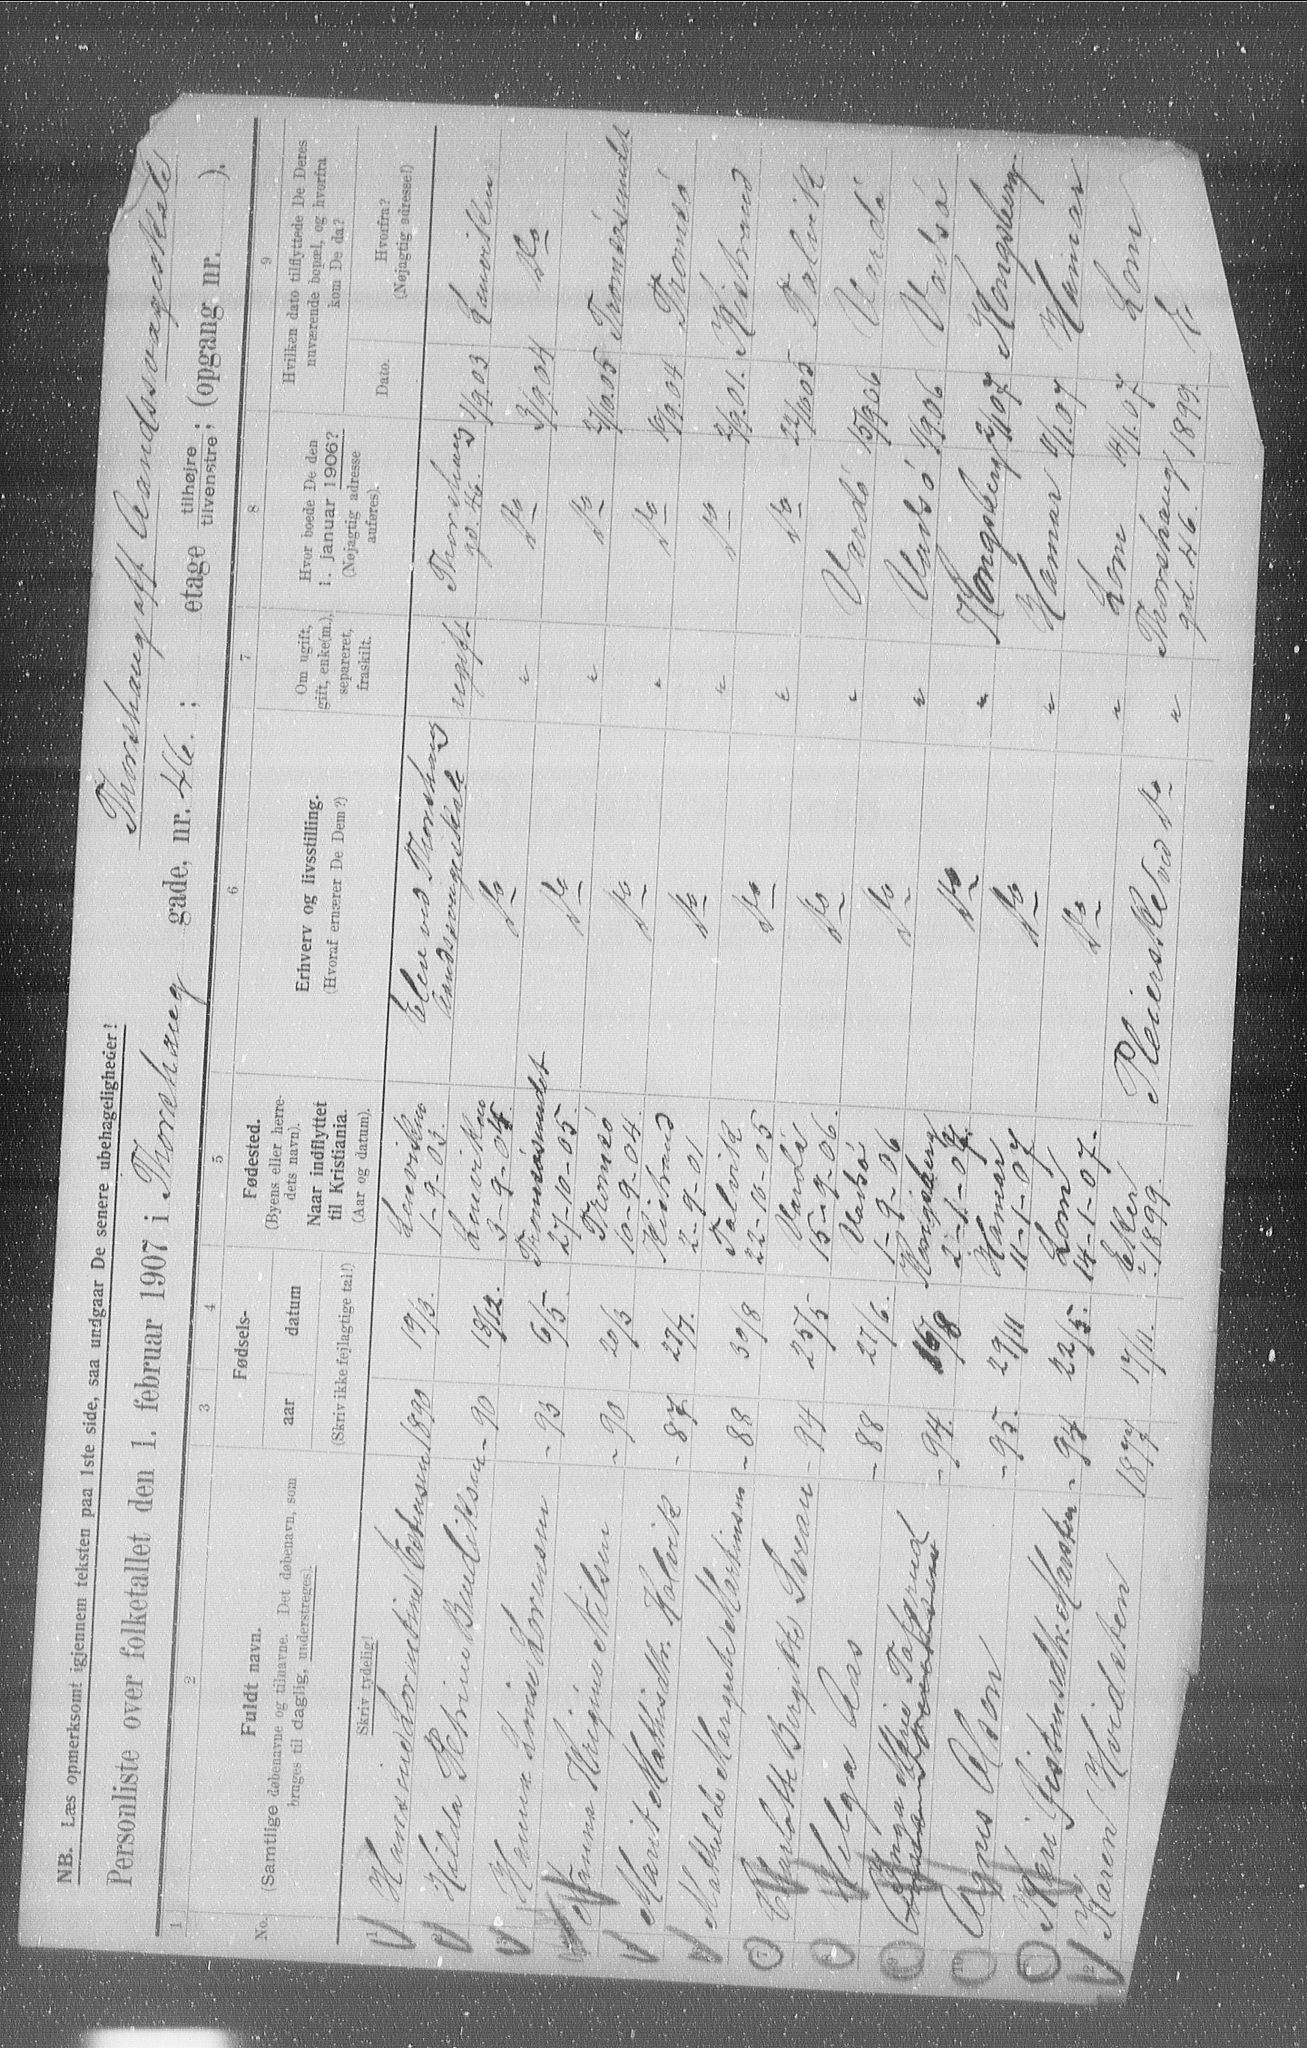 NB. Læs opmerksomt igjennem teksten paa 1ste side, saa undgaar De senere ubehageligheder!
Thorshaug off Aandssvageskole
Personliste over folketallet den 1. februar 1907 i Thorshaug gade, nr. 46. ; etage tilhøjre tilvenstre; (opgang nr. ).
1 2 3 4 5 6 7 8 9
No.
Fuldt navn.
(Samtlige døbenavne og tilnavne. Det døbenavn, som
bruges til daglig, understreges).
Skriv tydelig!
Fødsels-
aar datum
(Skriv ikke fejlagtige tal!)
Fødested.
(Byens eller herre-
dets navn).
Naar indflyttet
til Kristiania.
(Aar og datum).
Erhverv og livsstilling.
(Hvoraf ernærer De Dem?)
Om ugift,
gift, enke(m.),
separeret,
fraskilt.
Hvor boede De den
1. januar 1906?
(Nøjagtig adresse
anføres).
Hvilken dato tilflyttede De Deres
nuværende bopæl, og hvorfra
kom De da?
Dato.
Hvorfra?
(Nøjagtig adresse!)
1 1890 19/3. 1-9-03. Elev ved Thorshaug ugift Thorshaug gd. 46. 1/9.03
Hilda Petrine Bendiksen - 90 13/12. 3-9-04. do " do 3/9.04 do
3 Hanna Lovise Lorensen - 93 6/5 Tromsøsundet 27-10-05 do " do 27/10.05 Tromsøsundet
Nanna Nilsen - 90 20/3 Tromsø 10-9-04. do " do 10/9.04 Tromsø
Marit Mathisdtr. Kolvik - 87 22/7. Kistrand 2-9-01 do " do 2/9.01. Kistrand
Mathilde Margrete Martinsen - 88 30/8 Talvik 22-10-05 do " do 22/10.05 Talvik
7 Charlotte Birgitte - 94 25/5 Vardø 15-9-06. do " Vardø 15/9.06 Vardø
8 Helga Aas - 88 27/6. Vadsø 1-9-06 do " Vadsø 1/9.06 Vadsø
9 Inga Marie - 94. Kongsberg 2-1-07. do " Kongsberg 2/1.07 Kongsberg
10 Agnes Olson - 95. 29/11 Hamar 11-1-07 do " Hamar 11/1.07 Hamar
11 Kari 22/5. Lom 14-1-07. do " Lom 14/1.07 Lom
12 Karen Hvidsten 1877 17/11. Eker - 1899. Pleierske ved do " Thorshaug gd. 46. 1899.